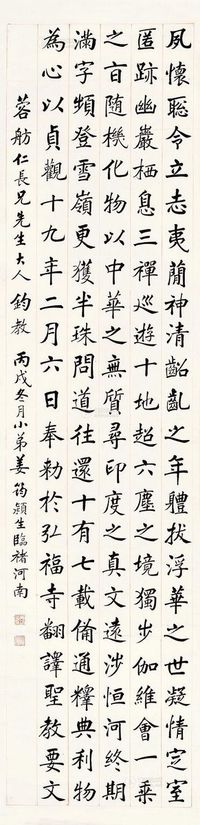 夙懷聡令立志夷蕳神清齠齔之年體拔浮華之世凝情定室
匿跡幽巖栖息三禪巡遊十地超六塵之境獨步伽維會一乘
之旨随機化物以中華之無質尋印度之真文遠涉恒河終期
滿字頻登雪嶺更獲半珠問道往還十有七載備通釋典利物
為心以貞觀十九年二月六日奉勑於弘福寺翻譯聖教要文
蓉舫仁長兄先生大人 鈞教 丙戌冬月小弟姜筠穎生臨褚河南